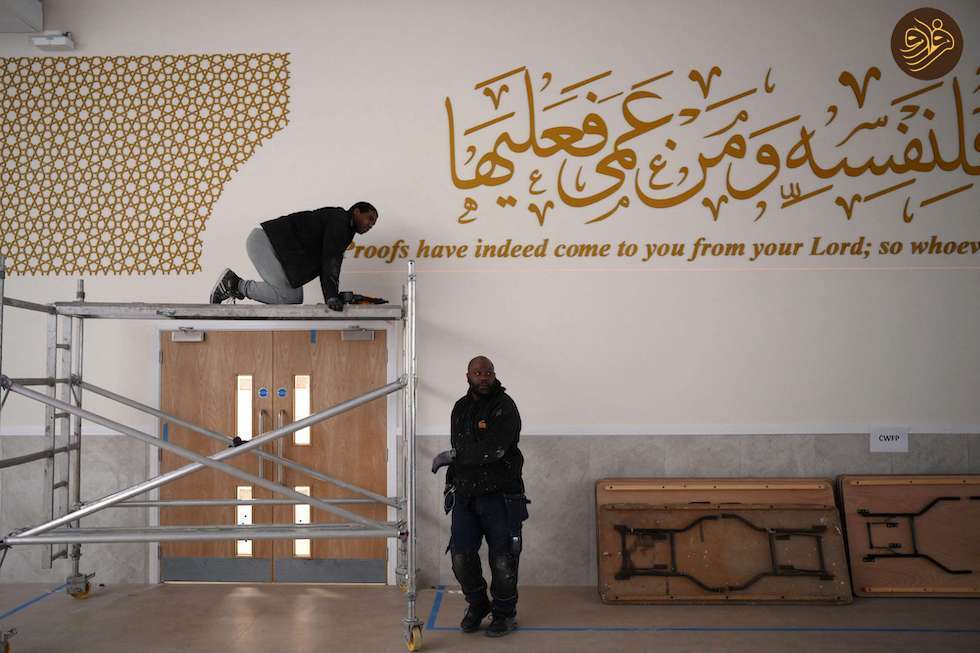 فلنفسه ومن عمي فعليها
Proofs have indeed come to you from your Lord; so whoev
CWFP